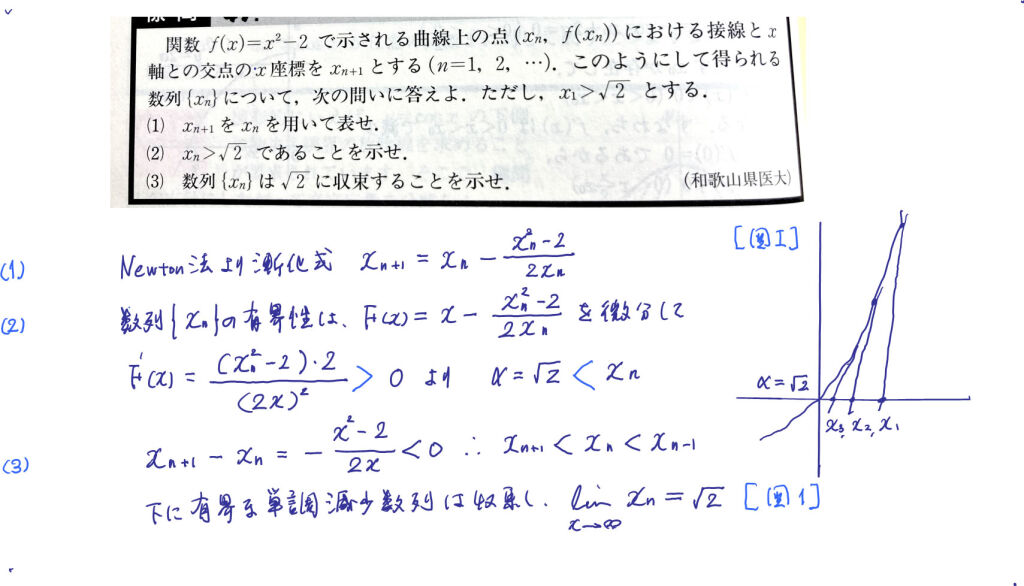 関数 f(x)=x²−2 で示される曲線上の点 (xₙ, f(xₙ)) における接線と x
軸との交点の x 座標を xₙ₊₁ とする (n=1, 2, …). このようにして得られる
数列 {xₙ} について, 次の問いに答えよ. ただし, x₁>√2 とする.
(1) xₙ₊₁ を xₙ を用いて表せ.
(2) xₙ>√2 であることを示せ.
(3) 数列 {xₙ} は √2 に収束することを示せ. (和歌山県医大)
[図I]
(1) Newton法より漸化式 xₙ₊₁ = xₙ − (xₙ²−2)/(2xₙ)
(2) 数列{xₙ}の有界性は、F(x) = x − (xₙ²−2)/(2xₙ) を微分して
F'(x) = ((xₙ²−2)·2)/(2x)² > 0 より α=√2 < xₙ
α=√2
x₃, x₂, x₁
(3) xₙ₊₁ − xₙ = −(x²−2)/(2x) < 0 ∴ xₙ₊₁ < xₙ < xₙ₋₁
下に有界な単調減少数列は収束し、lim x→∞ xₙ = √2 [図1]